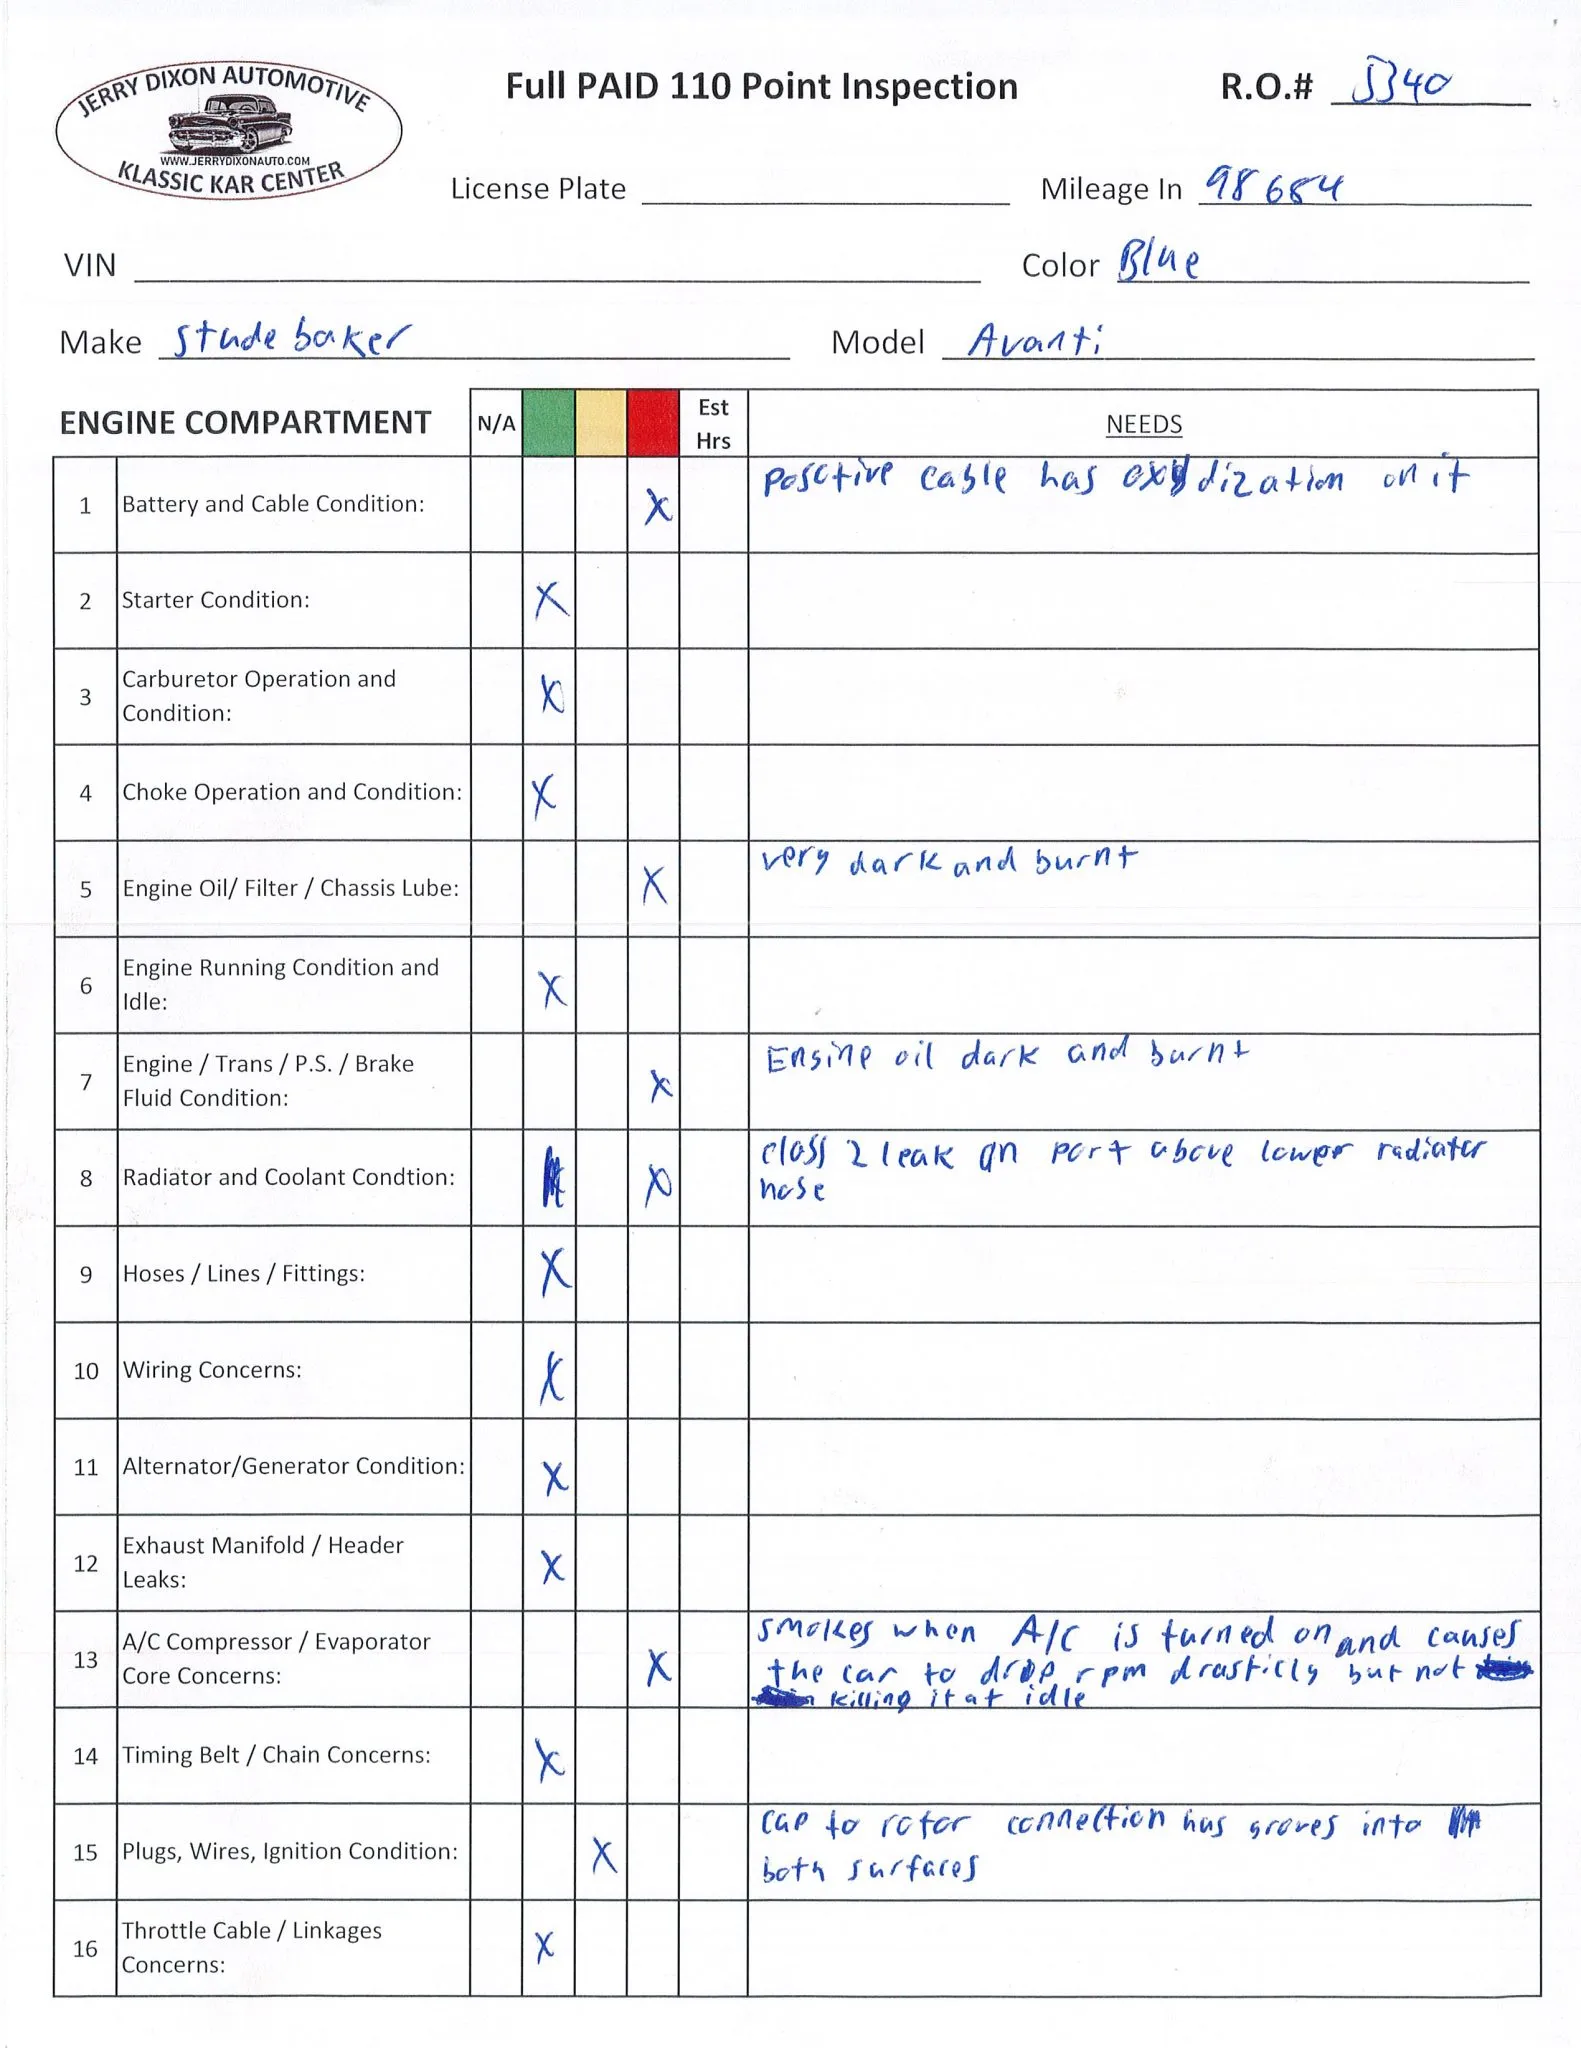 JERRY DIXON AUTOMOTIVE
WWW.JERRYDIXONAUTO.COM
KLASSIC KAR CENTER
Full PAID 110 Point Inspection
R.O.# 5340
License Plate
Mileage In 98684
VIN
Color Blue
Make studebaker
Model Avanti
ENGINE COMPARTMENT N/A Est Hrs NEEDS
1 Battery and Cable Condition: X posotive cable has oxydization on it
2 Starter Condition: X
3 Carburetor Operation and
Condition: X
4 Choke Operation and Condition: X
5 Engine Oil/ Filter / Chassis Lube: X very dark and burnt
6 Engine Running Condition and
Idle: X
7 Engine / Trans / P.S. / Brake
Fluid Condition: X Engine oil dark and burnt
8 Radiator and Coolant Condtion: X class 2 leak on port above lower radiator
hose
9 Hoses / Lines / Fittings: X
10 Wiring Concerns: X
11 Alternator/Generator Condition: X
12 Exhaust Manifold / Header
Leaks: X
13 A/C Compressor / Evaporator
Core Concerns: X smokes when A/C is turned on and causes
the car to drop rpm drasticly but not
killing it at idle
14 Timing Belt / Chain Concerns: X
15 Plugs, Wires, Ignition Condition: X cap to rotor connection has groves into
both surfaces
16 Throttle Cable / Linkages
Concerns: X